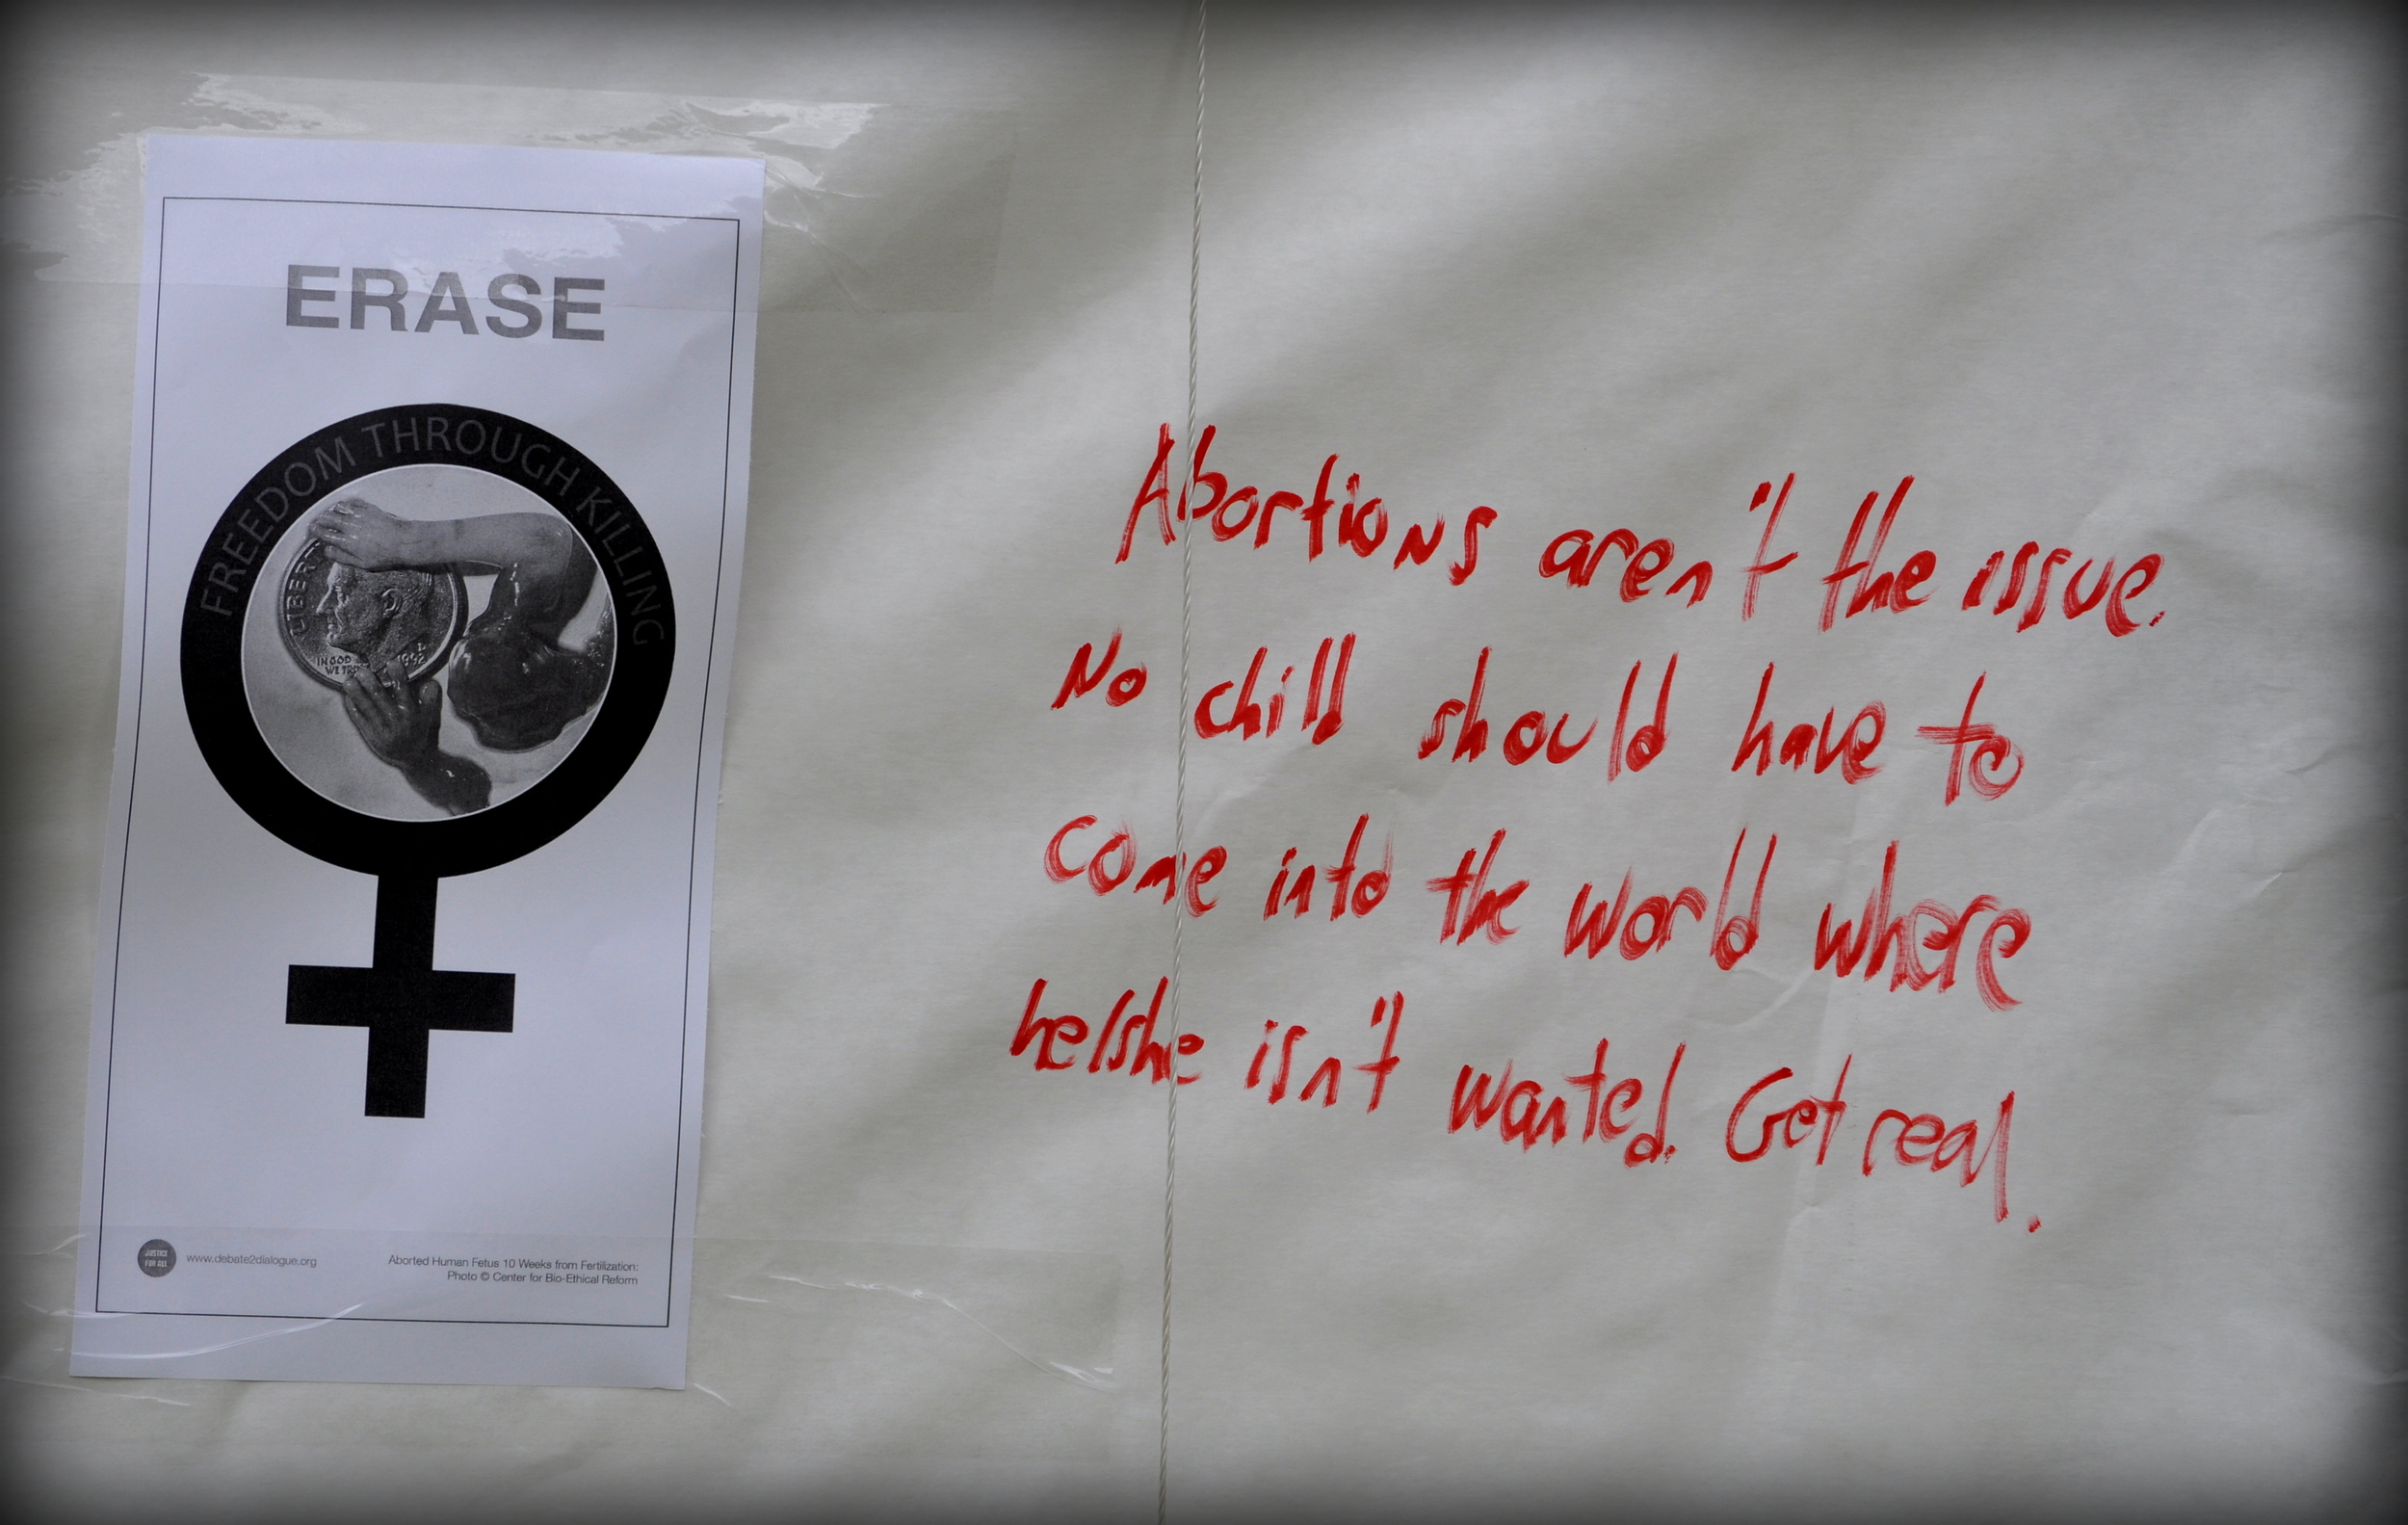 ERASE
FREEDOM THROUGH KILLING
LIBERT
IN GOD
WE TR
D
1992
JUSTICE
FOR ALL
www.debate2dialogue.org
Aborted Human Fetus 10 Weeks from Fertilization:
Photo © Center for Bio-Ethical Reform
Abortions aren't the issue.
No chilld should have to
come into the world where
he/she isn't wanted. Get real.